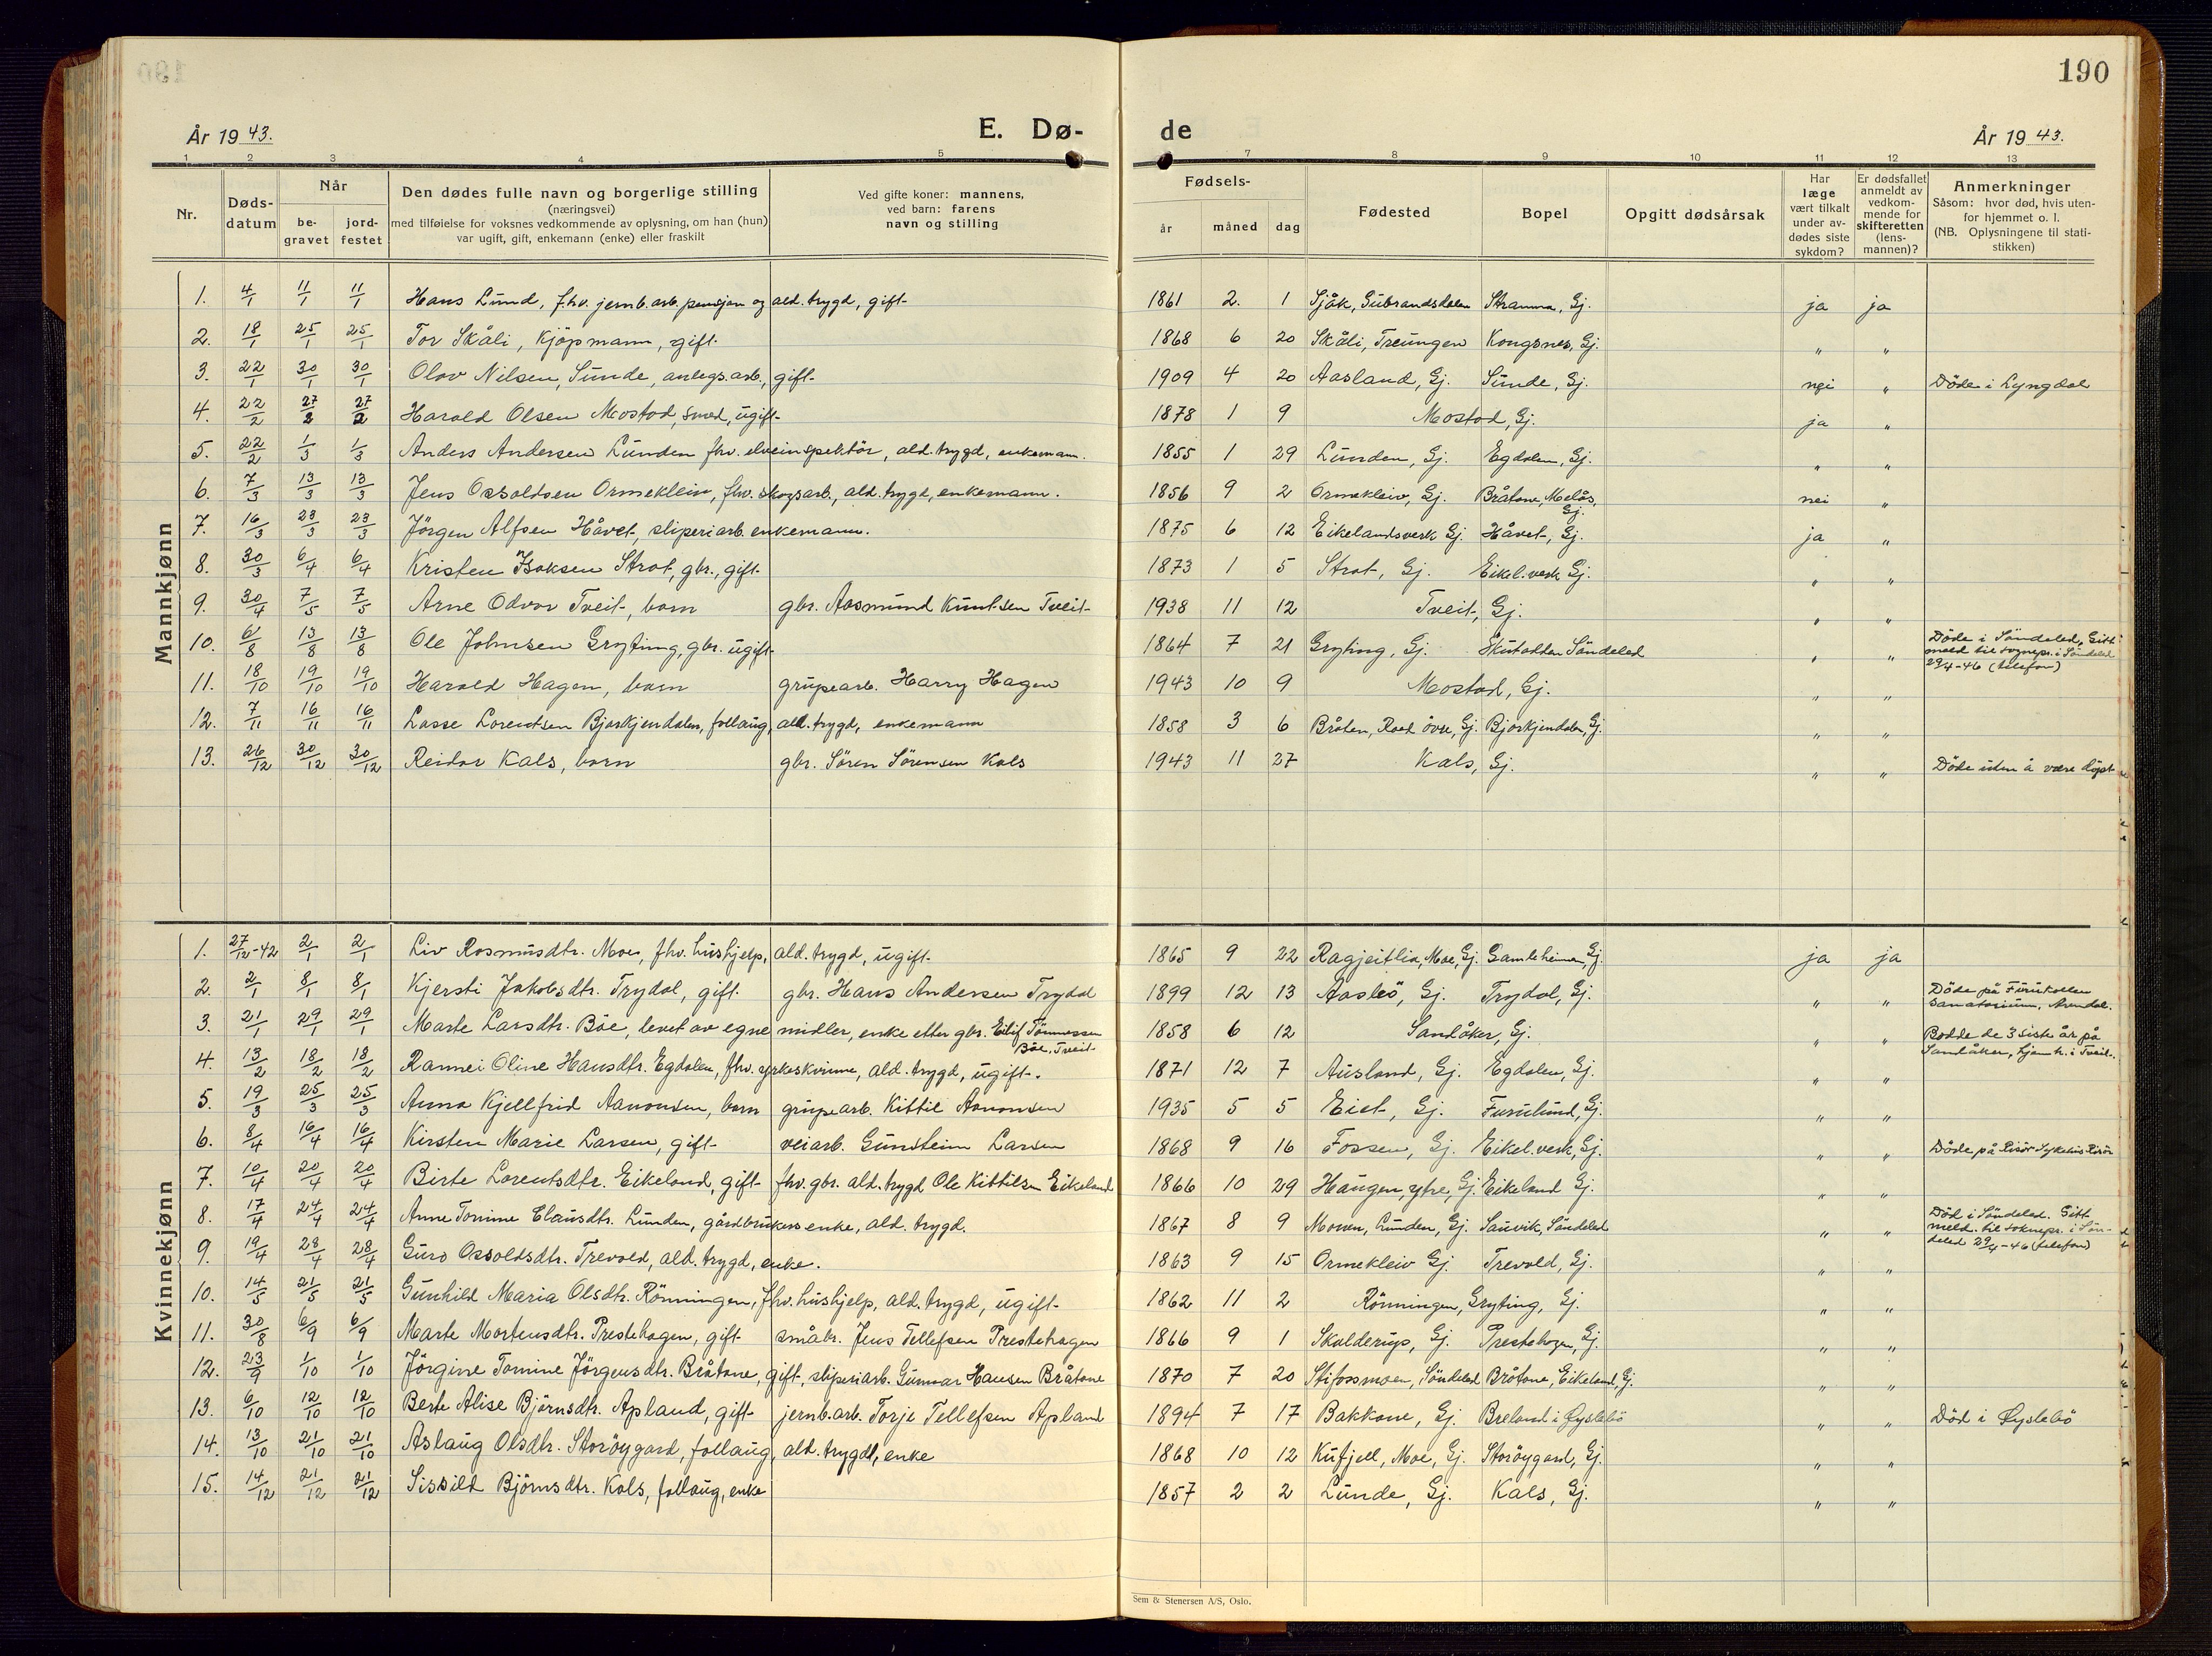 190
År 1943.
E. Dø-
de
År 1943.
1 2 3 4 5 7 8 9 10 11 12 13
Nr.
Døds-
datum
Når
be-
gravet
jord-
festet
Den dødes fulle navn og borgerlige stilling
(næringsvei)
med tilføielse for voksnes vedkommende av oplysning, om han (hun)
var ugift, gift, enkemann (enke) eller fraskilt
Ved gifte koner: mannens,
ved barn: farens
navn og stilling
Fødsels-
år måned dag
Fødested
Bopel
Opgitt dødsårsak
Har
læge
vært tilkalt
under av-
dødes siste
sykdom?
Er dødsfallet
anmeldt av
vedkom-
mende for
skifteretten
(lens-
mannen)?
Anmerkninger
Såsom: hvor død, hvis uten-
for hjemmet o. l.
(NB. Oplysningene til stati-
stikken)
Mannkjønn
1. 4/1 11/1 11/1 Hans Lund, fhv. jernb.arb. pensjon og ald. trygd, gift 1861 2. 1 Sjåk, Gubrandsdalen Stramma, Gj. ja ja
2. 18/1 25/1 25/1 Tor Skåli, Kjöpmann, gift. 1868 6 20 Skåli, Treungen Kongsnes, Gj. " "
3. 22/1 30/1 30/1 Olav Nilsen, Sunde, anlegs.arb., gift. 1909 4 20 Aasland, Gj. Sunde, Gj. nei " Döde i Lyngdal
4. 22/2 27/2 27/2 Harald Olsen Mostad, smed, ugift. 1878 1 9 Mostad, Gj. ja "
5. 22/2 1/3 1/3 Anders Andersen Lunden fhv. elveinspektör, ald. trygd, enkemann. 1855 1 29 Lunden, Gj. Egdalen, Gj. " "
6. 7/3 13/3 13/3 Jens Osvoldsen Ormeklein, fhv. skogsarb., ald. trygd, enkemann. 1856 9 2 Ormekleiv, Gj. Bråtane, Melås, Gj. nei "
7. 16/3 23/3 23/3 Jörgen Alfsen Håvet, sliperiarb. enkemann. 1875 6 12 Eikelandsverk Gj. Håvet, Gj. ja "
8. 30/3 6/4 6/4 Kristen Isaksen Strat, gbr., gift. 1873 1 5 Strat, Gj. Eikel.verk Gj. " "
9. 30/4 7/5 7/5 Arne Odvar Tveit, barn gbr. Aasmund Knutsen Tveit 1938 11 12 Tveit, Gj. " "
10. 6/8 13/8 13/8 Ole Johnsen Gryting, gbr. ugift 1864 7 21 Gryting, Gj. Söndeled " " Döde i Söndeled, Gitt
meld til sognepr. i Söndeled
29/4-46 (telefon)
11. 18/10 19/10 19/10 Harald Hagen, barn grupearb. Harry Hagen 1943 10 9 Mostad, Gj. " "
12. 7/11 16/11 16/11 Lasse Lorentsen Bjorkjendalen, follaug, ald. trygd, enkemann 1858 3 6 Bråten, Roed övre, Gj. Bjorkjendalen, Gj. " "
13. 26/12 30/12 30/12 Reidar Kals, barn gbr. Sören Sörensen Kals 1943 11 27 Kals, Gj. " " Döde uten å være döpt
Kvinnekjønn
1. 27/12-42 2/1 2/1 Liv Rasmusdtr. Moe, fhv. hushjelp, ald. trygd, ugift. 1865 9 22 Ragjeitlia, Moe, Gj. Gamleheimen, Gj. ja ja
2. 2/1 8/1 8/1 Kjersti Jakobsdtr. Trydal, gift. gbr. Hans Andersen Trydal 1899 12 13 Aasleö, Gj. Trydal, Gj. " " Döde på Furukollen
Sanatorium, Arendal.
3. 21/1 29/1 29/1 Marte Larsdtr. Böe, levet av egne midler, enke etter gbr. Eilif Tönnessen
Böe, Tveit 1858 6 12 Sandåker, Gj. " " Bodde de 3 siste år på
Sandåker, hjemh. i Tveit.
4. 13/2 18/2 18/2 Rannei Oline Hansdtr. Egdalen, fhv. yrkeskvinne, ald. trygd, ugift. 1871 12 7 Ausland, Gj. Egdalen, Gj. " "
5. 19/3 25/3 25/3 Anna Kjellfrid Aanonsen, barn grupearb. Kittil Aanonsen 1935 5 5 Eiet, Gj. Furulund, Gj. " "
6. 8/4 16/4 16/4 Kirsten Marie Larsen, gift. veiarb. Gunsteim Larsen 1868 9 16 Fossen, Gj. Eikel.verk, Gj. " " Döde på Risör Sykehus Risör
7. 10/4 20/4 20/4 Birte Lorentsdtr. Eikeland, gift fhv. gbr. ald. trygd Ole Kittilsen Eikeland 1866 10 29 Haugen, ytre, Gj. Eikeland Gj. " "
8. 17/4 24/4 24/4 Anne Tomine Clausdtr. Lunden, gårdbrukers enke, ald. trygd. 1867 8 9 Mouen, Lunden, Gj. Sauvik, Söndeled " " Död i Söndeled. Gitt
meld. til sognepr. i Sön-
deled 29/4-46 (telefon)
9. 19/4 28/4 28/4 Guro Osvoldsdtr. Trevold, ald. trygd, enke. 1863 9 15 Ormekleiv Gj. Trevold, Gj. " "
10. 14/5 21/5 21/5 Gunhild Maria Olsdtr. Rönningen, fhv. hushjelp, ald. trygd, ugift. 1862 11 2 Rönningen, Gryting, Gj. " "
11. 30/8 6/9 6/9 Marte Mortensdtr. Prestehagen, gift. småbr. Jens Tellefsen Prestehagen 1866 9 1 Skalderup, Gj. Prestehagen, Gj. " "
12. 23/9 1/10 1/10 Jörgine Tomine Jörgensdtr. Bråtane, gift, sliperiarb. Gunnar Hansen Bråtane 1870 7 20 Stifossmoen, Söndeled Bråtane, Eikeland, Gj. " "
13. 6/10 12/10 12/10 Berte Alise Björnsdtr. Apland, gift jernb.arb. Torje Tellefsen Apland 1894 7 17 Bakkane, Gj. Breland i Öyslebö " " Död i Öyslebö
14. 13/10 21/10 21/10 Aslaug Olsdtr. Storöygard, follaug, ald. trygd, enke 1868 10 12 Kufjell, Moe, Gj. Storöygard, Gj. " "
15. 14/12 21/12 21/12 Sissild Björnsdtr. Kals, follaug, enke 1857 2 2 Lunde, Gj. Kals, Gj. " "
Sem & Stenersen A/S, Oslo.